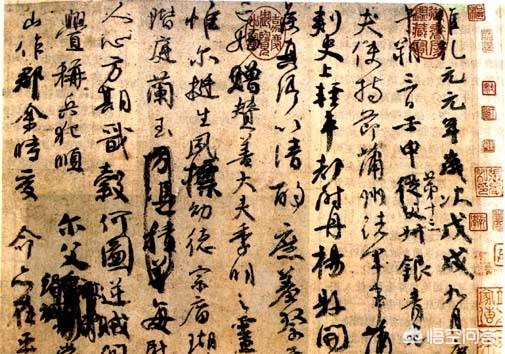 維乾元元年歲次戊戌九月
午朔三日壬申第十三從父銀青
夫使持節蒲州諸軍事蒲
刺史上輕車都尉丹楊縣開
侯真卿以清酌庶羞祭
亡姪贈贊善大夫季明之靈
惟爾挺生夙標幼德宗廟瑚
階庭蘭玉方憑積善每慰
人心方期戩穀何圖逆賊間
釁稱兵犯順爾父
山作郡余時受命亦在平
悟空问答